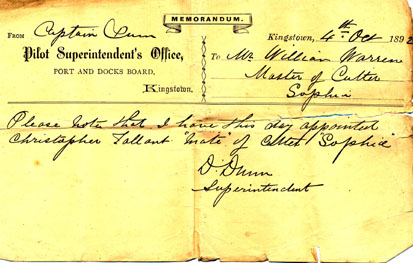 MEMORANDUM.
FROM Captain Dunn
Kingstown, 4th Oct 1892
Pilot Superintendent's Office,
To Mr William Warren
PORT AND DOCKS BOARD,
Master of Cutter
Kingstown.
Sophia
Please note that I have this day appointed
Christopher Tallant "Mate" of Cutter "Sophia"
D. Dunn
Superintendent